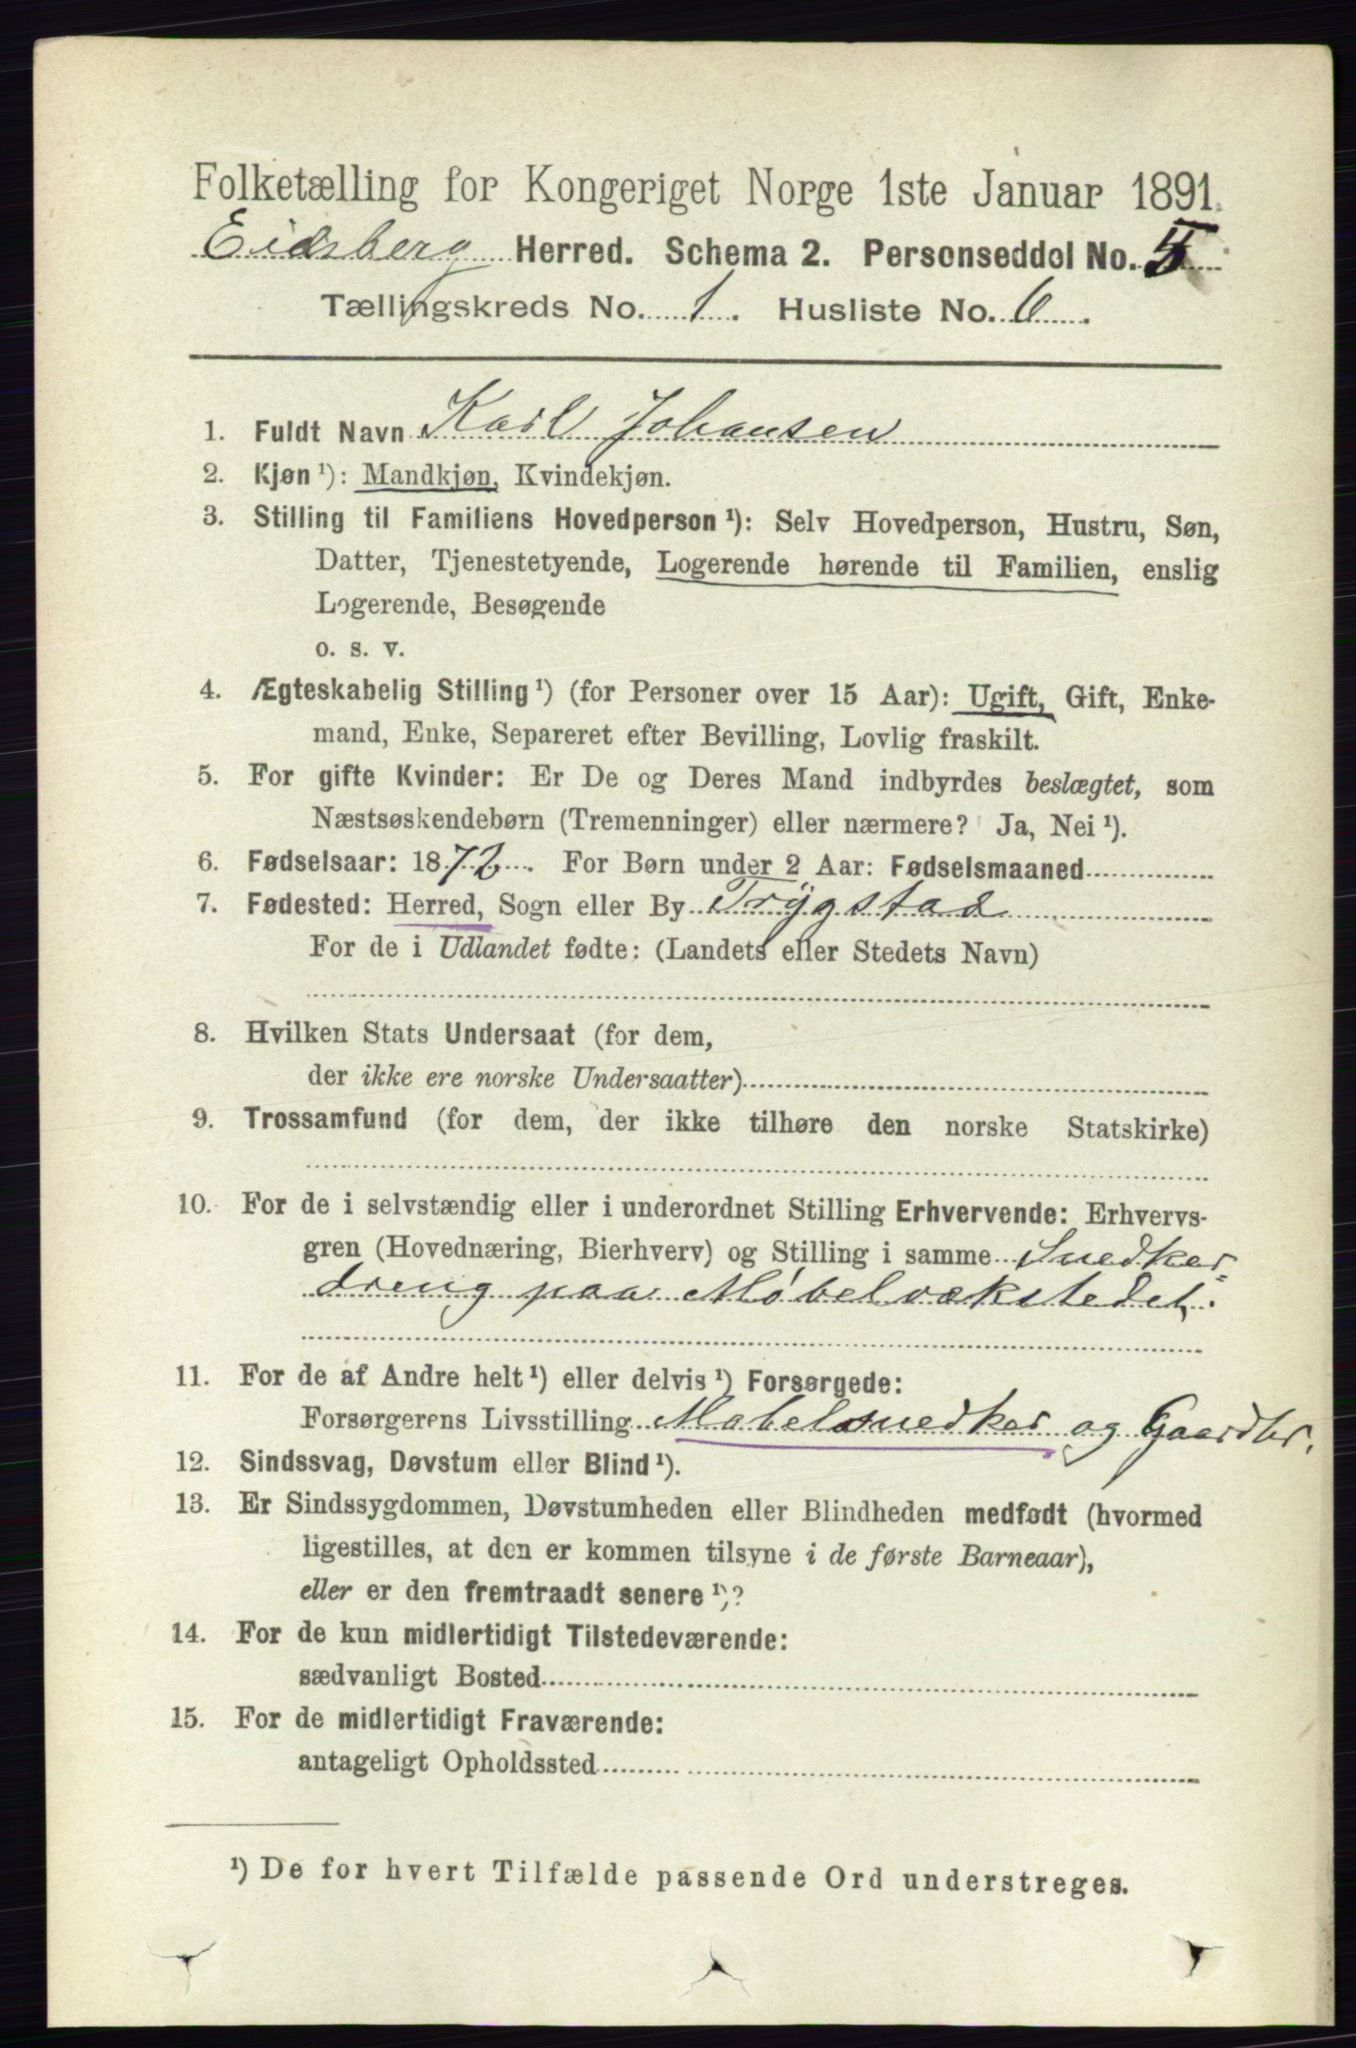 Folketælling for Kongeriget Norge 1ste Januar 1891.
Eidsberg Herred. Schema 2. Personseddel No. 5
Tællingskreds No. 1. Husliste No. 6.
1. Fuldt Navn Karl Johansen
2. Kjøn ¹): Mandkjøn, Kvindekjøn.
3. Stilling til Familiens Hovedperson ¹): Selv Hovedperson, Hustru, Søn,
Datter, Tjenestetyende, Logerende hørende til Familien, enslig
Logerende, Besøgende
o. s. v.
4. Ægteskabelig Stilling ¹) (for Personer over 15 Aar): Ugift, Gift, Enke-
mand, Enke, Separeret efter Bevilling, Lovlig fraskilt.
5. For gifte Kvinder: Er De og Deres Mand indbyrdes beslægtet, som
Næstsøskendebørn (Tremenninger) eller nærmere? Ja, Nei ¹).
6. Fødselsaar: 1872. For Børn under 2 Aar: Fødselsmaaned
7. Fødested: Herred, Sogn eller By Trygstad
For de i Udlandet fødte: (Landets eller Stedets Navn)
8. Hvilken Stats Undersaat (for dem,
der ikke ere norske Undersaatter)
9. Trossamfund (for dem, der ikke tilhøre den norske Statskirke)
10. For de i selvstændig eller i underordnet Stilling Erhvervende: Erhvervs-
gren (Hovednæring, Bierhverv) og Stilling i samme Snedker=
dreng paa Møbelvækstedet.
11. For de af Andre helt ¹) eller delvis ¹) Forsørgede:
Forsørgerens Livsstilling Møbelsnedker og Gaardbr.
12. Sindssvag, Døvstum eller Blind ¹).
13. Er Sindssygdommen, Døvstumheden eller Blindheden medfødt (hvormed
ligestilles, at den er kommen tilsyne i de første Barneaar),
eller er den fremtraadt senere ¹)?
14. For de kun midlertidigt Tilstedeværende:
sædvanligt Bosted
15. For de midlertidigt Fraværende:
antageligt Opholdssted
¹) De for hvert Tilfælde passende Ord understreges.